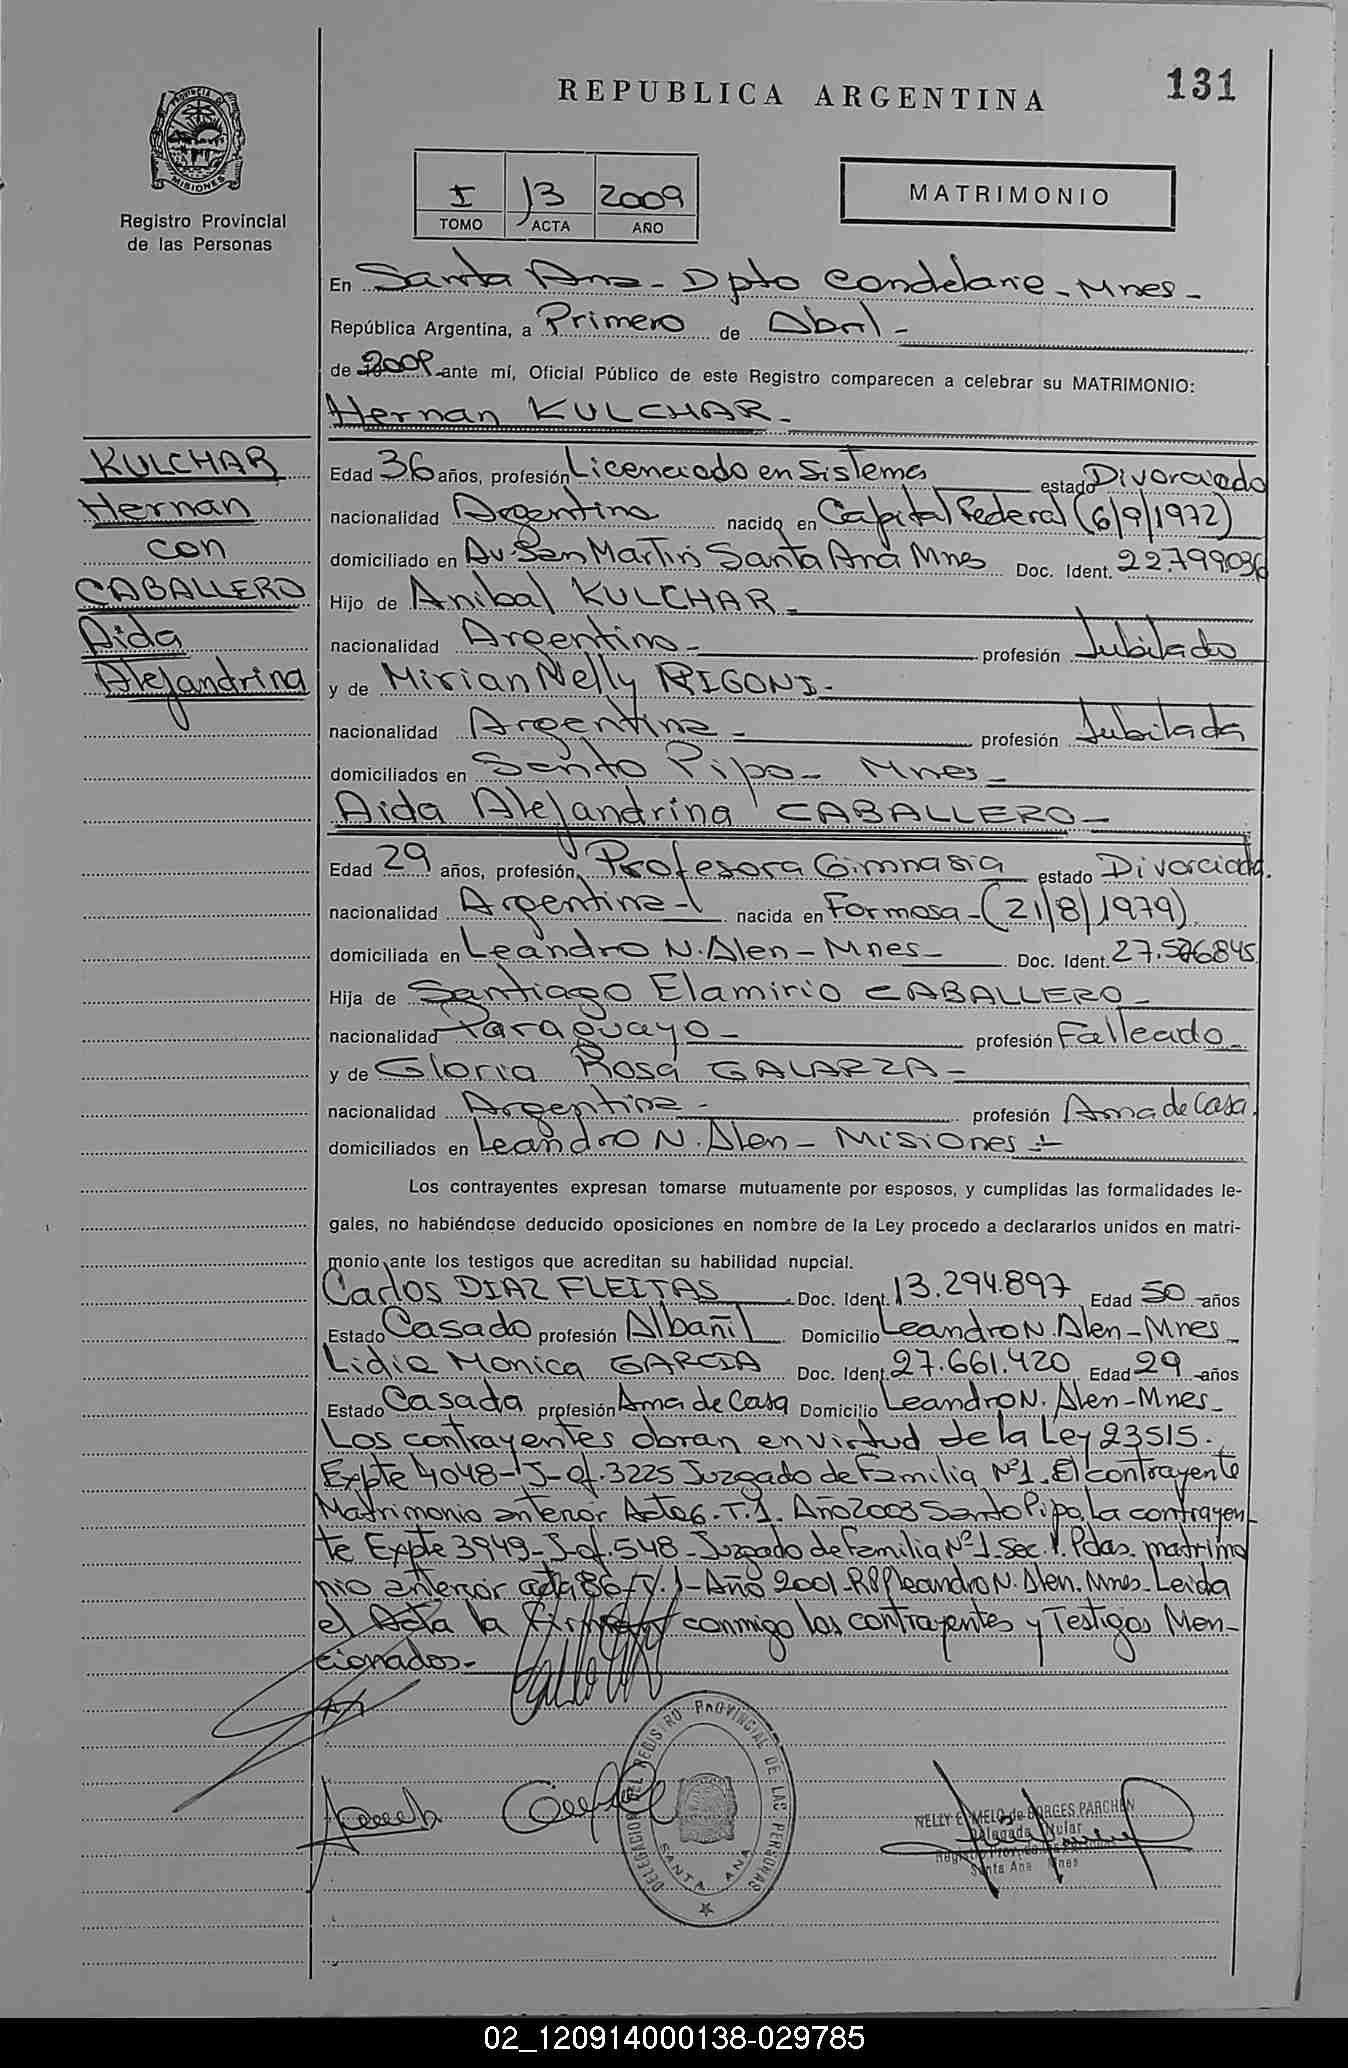 131
REPUBLICA ARGENTINA
PROVINCIA DE
MISIONES
Registro Provincial
de las Personas
I 13 2009
TOMO ACTA AÑO
MATRIMONIO
En Santa Ana - Dpto Candelaria - Mnes -
República Argentina, a Primero de Abril -
de 2009 ante mí, Oficial Público de este Registro comparecen a celebrar su MATRIMONIO:
Hernan KULCHAR -
KULCHAR
Hernan
con
CABALLERO
Aida
Alejandrina
Edad 36 años, profesión Licenciado en Sistema estado Divorciado
nacionalidad Argentino nacido en Capital Federal (6/9/1972)
domiciliado en Av. San Martin Santa Ana Mnes Doc. Ident. 22.799.036
Hijo de Anibal KULCHAR -
nacionalidad Argentino - profesión Jubilado
y de Mirian Nelly RIGONI -
nacionalidad Argentina - profesión Jubilada
domiciliados en Santo Pipo - Mnes -
Aida Alejandrina CABALLERO -
Edad 29 años, profesión, Profesora Gimnasia estado Divorciada.
nacionalidad Argentina - nacida en Formosa - (21/8/1979)
domiciliada en Leandro N. Alen - Mnes - Doc. Ident.
Hija de Santiago Elamirio CABALLERO -
nacionalidad Paraguayo - profesión Falleado -
y de Gloria Rosa GALARZA -
nacionalidad Argentina - profesión Ama de Casa.
domiciliados en Leandro N. Alen - Misiones -
Los contrayentes expresan tomarse mutuamente por esposos, y cumplidas las formalidades le-
gales, no habiéndose deducido oposiciones en nombre de la Ley procedo a declararlos unidos en matri-
monio ante los testigos que acreditan su habilidad nupcial.
Carlos DIAZ FLEITAS Doc. Ident. 13.294.897 Edad 50 años
Estado Casado profesión Albañil Domicilio Leandro N. Alen - Mnes
Lidia Monica GARCIA Doc. Ident. 27.661.420 Edad 29 años
Estado Casada profesión Ama de Casa Domicilio Leandro N. Alen - Mnes -
Los contrayentes obran en virtud de la Ley 23515.
Expte 4048 - J - of. 3225 Juzgado de Familia Nº 1. El contrayente
Matrimonio anterior Acta 6. T. 1. Año 2003 Santo Pipo. La contrayen-
te Expte 3949 - J - of. 548 - Juzgado de Familia Nº 1. Sec. 1. Pdas. matrimo
nio anterior acta 86 - T. 1 - Año 2001 - RPP Leandro N. Alen. Mnes. Leida
el Acta la conmigo los contrayentes y Testigos Men-
cionados -
DELEGACION DEL REGISTRO PROVINCIAL DE LAS PERSONAS
SANTA ANA
NELLY E. MELO de BORGES PARCHEN
Delegada Titular
Registro Prov. de las
Santa Ana Mnes
02_120914000138-029785